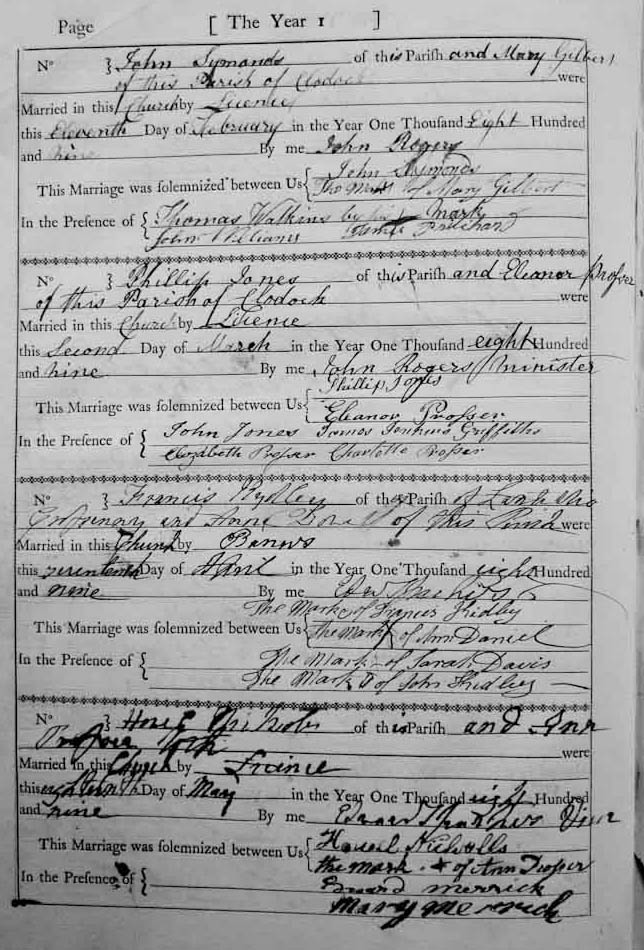 Page [ The Year 1 ]
No } John Symonds of this Parish and Mary Gilbert
of this Parish of Clodock were
Married in this Church by Licence
this Eleventh Day of February in the Year One Thousand Eight Hundred
and nine By me John Rogers
This Marriage was solemnized between Us { John Symonds
The Mark of Mary Gilbert
In the Presence of { Thomas Watkins by his Mark
John Williams James Pritchard
No } Phillip Jones of this Parish and Eleanor Profser
of this Parish of Clodock were
Married in this Church by Licence
this Second Day of March in the Year One Thousand eight Hundred
and nine By me John Rogers Minister
This Marriage was solemnized between Us { Phillip Jones
Eleanor Profser
In the Presence of { John Jones James Jenkins Griffiths
Elizabeth Profser Charlotte Profser
No } Francis of the Parish of
and Anne of this Parish were
Married in this Church by Banns
this Day of April in the Year One Thousand eight Hundred
and nine By me
The Mark of Francis
This Marriage was solemnized between Us { the Mark of Ann Daniel
In the Presence of { The Mark of Sarah Davis
The Mark of John
No } of this Parish and Ann
were
Married in this Church by Licence
this Day of May in the Year One Thousand eight Hundred
and nine By me Edward Vicar
This Marriage was solemnized between Us { Howel Nicholls
the mark of Ann
In the Presence of { Edward Merrick
Mary Merrick